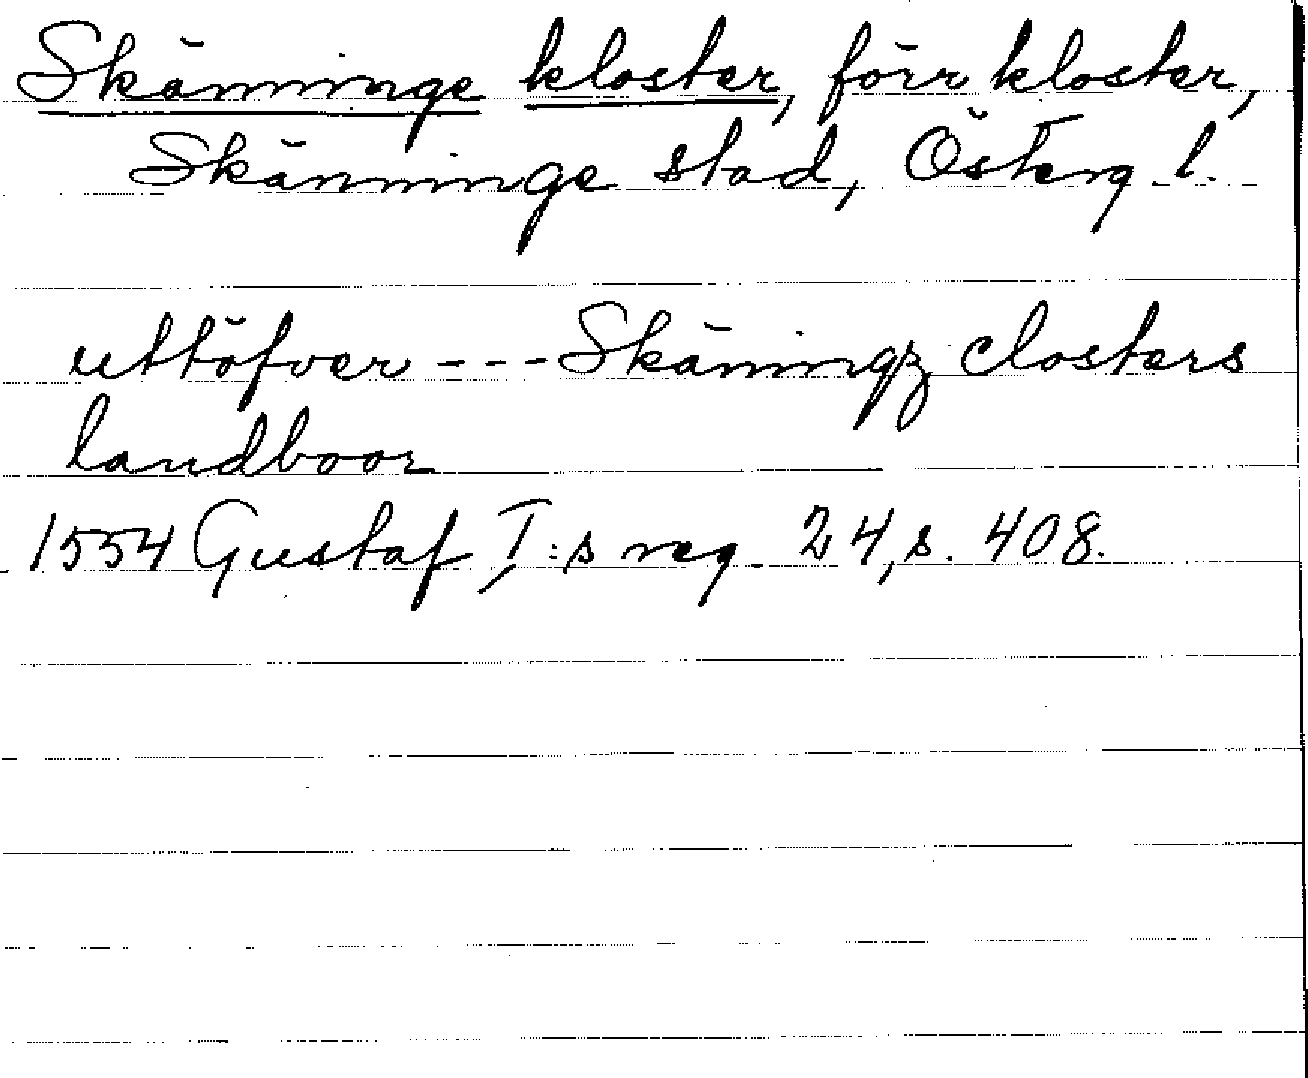 Skänninge kloster, förr kloster,
Skänninge stad, Österg. l.
uttöfver - - - Skäningz closters
landboor
1554 Gustaf I:s reg. 24, s. 408.